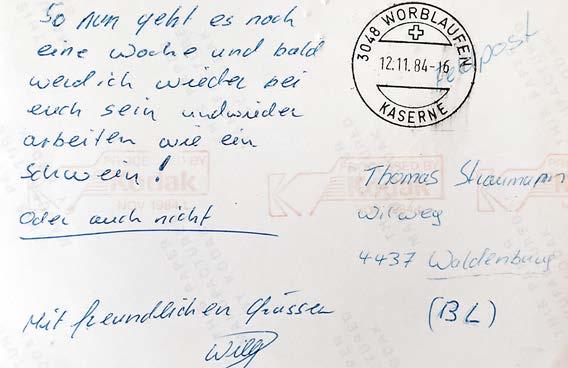 So nun geht es noch
eine Woche und bald
werd ich wieder bei
euch sein und wieder
arbeiten wie ein
Schwein!
Oder auch nicht
Mit freundlichen Grüssen
Willy
3048 WORBLAUFEN
12.11.84-16
KASERNE
Feldpost
Thomas Straumann
Wilweg
4437 Waldenburg
(BL)
PROCESSED BY
Kodak
NOV 1984
PROCESSED BY
Kodak